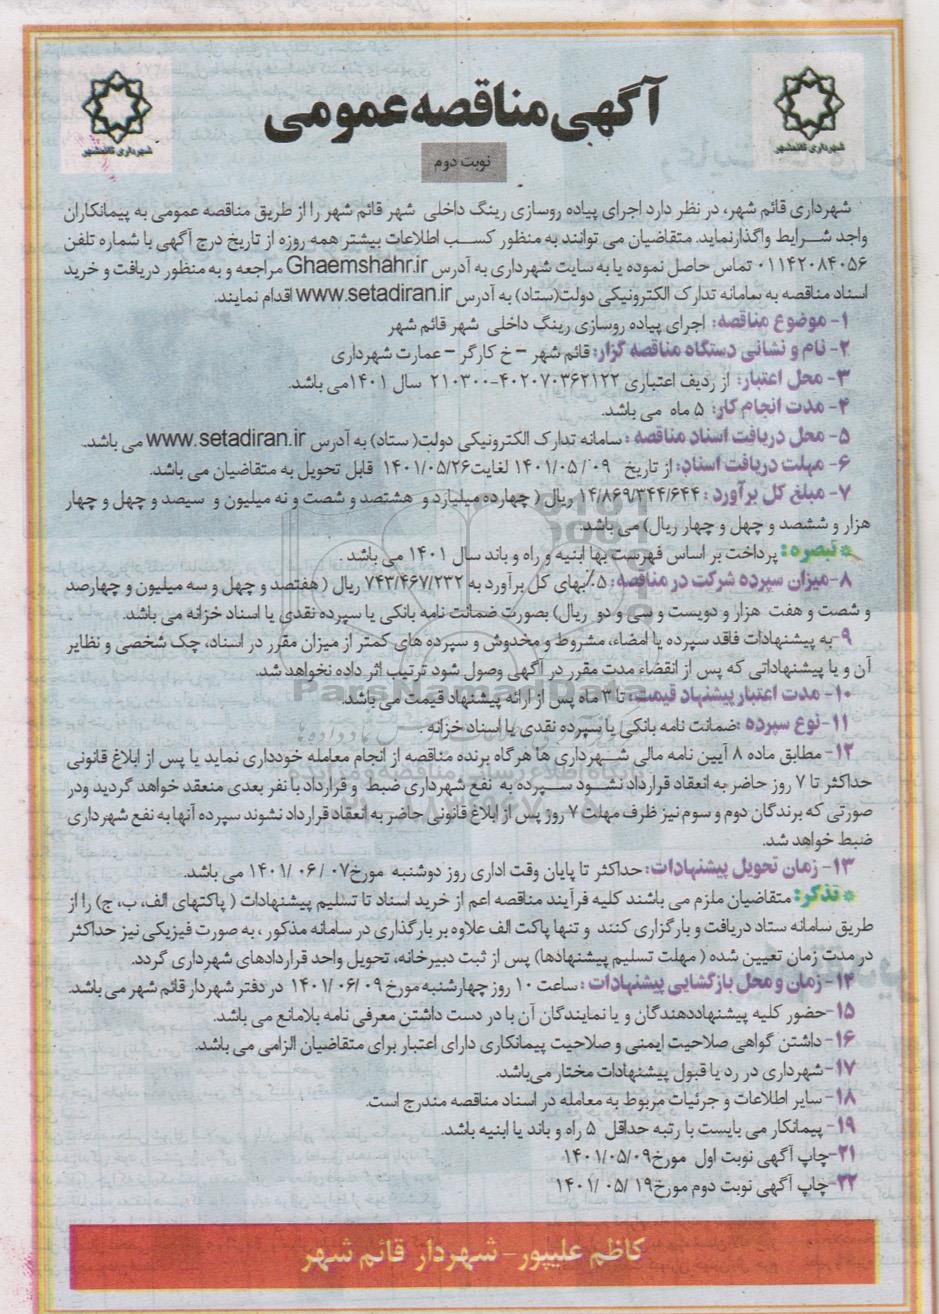 آگهی مناقصه عمومی
شهرداری قائمشهر
شهرداری قائمشهر
نوبت دوم
شهرداری قائم شهر، در نظر دارد اجرای پیاده روسازی رینگ داخلی شهر قائم شهر را از طریق مناقصه عمومی به پیمانکاران
واجد شرایط واگذارنماید. متقاضیان می توانند به منظور کسب اطلاعات بیشتر همه روزه از تاریخ درج آگهی با شماره تلفن
۰۱۱۴۲۰۸۴۰۵۶ تماس حاصل نموده یا به سایت شهرداری به آدرس Ghaemshahr.ir مراجعه و به منظور دریافت و خرید
اسناد مناقصه به سامانه تدارک الکترونیکی دولت(ستاد) به آدرس www.setadiran.ir اقدام نمایند.
۱- موضوع مناقصه: اجرای پیاده روسازی رینگ داخلی شهر قائم شهر
۲- نام و نشانی دستگاه مناقصه گزار: قائم شهر – خ کارگر – عمارت شهرداری
۳- محل اعتبار: از ردیف اعتباری ۴۰۲۰۷۰۳۶۲۱۲۲-۲۱۰۳۰۰ سال ۱۴۰۱می باشد.
۴- مدت انجام کار: ۵ ماه می باشد.
۵- محل دریافت اسناد مناقصه : سامانه تدارک الکترونیکی دولت( ستاد) به آدرس www.setadiran.ir می باشد.
۶- مهلت دریافت اسناد: از تاریخ ۱۴۰۱/۰۵/۰۹ لغایت۱۴۰۱/۰۵/۲۶ قابل تحویل به متقاضیان می باشد.
۷- مبلغ کل برآورد : ۱۴/۸۶۹/۳۴۴/۶۴۴ ریال ( چهارده میلیارد و هشتصد و شصت و نه میلیون و سیصد و چهل و چهار
هزار و ششصد و چهل و چهار ریال) می باشد.
* تبصره: پرداخت بر اساس فهرست بها ابنیه و راه و باند سال ۱۴۰۱ می باشد .
۸-میزان سپرده شرکت در مناقصه: ۵٪بهای کل برآورد به ۷۴۳/۴۶۷/۲۳۲ ریال ( هفتصد و چهل و سه میلیون و چهارصد
و شصت و هفت هزار و دویست و سی و دو ریال) بصورت ضمانت نامه بانکی یا سپرده نقدی یا اسناد خزانه می باشد.
۹-به پیشنهادات فاقد سپرده یا امضاء، مشروط و مخدوش و سپرده های کمتر از میزان مقرر در اسناد، چک شخصی و نظایر
آن و یا پیشنهاداتی که پس از انقضاء مدت مقرر در آگهی وصول شود ترتیب اثر داده نخواهد شد.
۱۰- مدت اعتبار پیشنهاد قیمت: تا ۳ ماه پس از ارائه پیشنهاد قیمت می باشد.
۱۱-نوع سپرده :ضمانت نامه بانکی یا سپرده نقدی یا اسناد خزانه .
۱۲- مطابق ماده ۸ آیین نامه مالی شهرداری ها هرگاه برنده مناقصه از انجام معامله خودداری نماید یا پس از ابلاغ قانونی
حداکثر تا ۷ روز حاضر به انعقاد قرارداد نشود سپرده به نفع شهرداری ضبط و قرارداد با نفر بعدی منعقد خواهد گردید ودر
صورتی که برندگان دوم و سوم نیز ظرف مهلت ۷ روز پس از ابلاغ قانونی حاضر به انعقاد قرارداد نشوند سپرده آنها به نفع شهرداری
ضبط خواهد شد.
۱۳- زمان تحویل پیشنهادات: حداکثر تا پایان وقت اداری روز دوشنبه مورخ۱۴۰۱/۰۶/۰۷ می باشد.
* تذکر: متقاضیان ملزم می باشند کلیه فرآیند مناقصه اعم از خرید اسناد تا تسلیم پیشنهادات ( پاکتهای الف، ب، ج) را از
طریق سامانه ستاد دریافت و بارگزاری کنند و تنها پاکت الف علاوه بر بارگذاری در سامانه مذکور ، به صورت فیزیکی نیز حداکثر
در مدت زمان تعیین شده ( مهلت تسلیم پیشنهادها) پس از ثبت دبیرخانه، تحویل واحد قراردادهای شهرداری گردد.
۱۴- زمان و محل بازگشایی پیشنهادات : ساعت ۱۰ روز چهارشنبه مورخ ۱۴۰۱/۰۶/۰۹ در دفتر شهردار قائم شهر می باشد.
۱۵-حضور کلیه پیشنهاددهندگان و یا نمایندگان آن با در دست داشتن معرفی نامه بلامانع می باشد.
۱۶- داشتن گواهی صلاحیت ایمنی و صلاحیت پیمانکاری دارای اعتبار برای متقاضیان الزامی می باشد.
۱۷-شهرداری در رد یا قبول پیشنهادات مختار می‌باشد.
۱۸- سایر اطلاعات و جرئیات مربوط به معامله در اسناد مناقصه مندرج است.
۱۹- پیمانکار می بایست با رتبه حداقل ۵ راه و باند یا ابنیه باشد.
۲۱-چاپ آگهی نوبت اول مورخ۱۴۰۱/۰۵/۰۹
۲۲-چاپ آگهی نوبت دوم مورخ۱۴۰۱/۰۵/۱۹
کاظم علیپور – شهردار قائم شهر
ParsNamadData